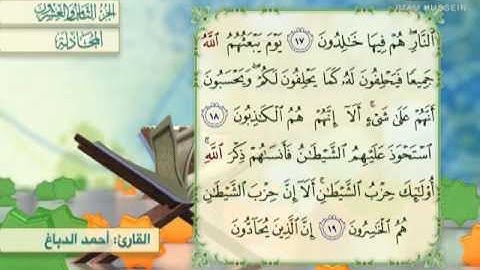 IMAM HUSSEIN
الجزء الثامن والعشرون
المجادلة
ٱلنَّارِ ۖ هُمْ فِيهَا خَٰلِدُونَ ١٧ يَوْمَ يَبْعَثُهُمُ ٱللَّهُ
جَمِيعًا فَيَحْلِفُونَ لَهُۥ كَمَا يَحْلِفُونَ لَكُمْ ۖ وَيَحْسَبُونَ
أَنَّهُمْ عَلَىٰ شَىْءٍ ۚ أَلَآ إِنَّهُمْ هُمُ ٱلْكَٰذِبُونَ ١٨
ٱسْتَحْوَذَ عَلَيْهِمُ ٱلشَّيْطَٰنُ فَأَنسَىٰهُمْ ذِكْرَ ٱللَّهِ ۚ
أُو۟لَٰٓئِكَ حِزْبُ ٱلشَّيْطَٰنِ ۚ أَلَآ إِنَّ حِزْبَ ٱلشَّيْطَٰنِ
هُمُ ٱلْخَٰسِرُونَ ١٩ إِنَّ ٱلَّذِينَ يُحَآدُّونَ
القارئ: أحمد الدباغ